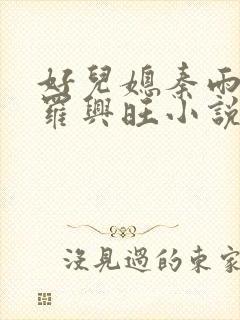 好兒媳秦雨
羅興旺小說
沒見過的東家